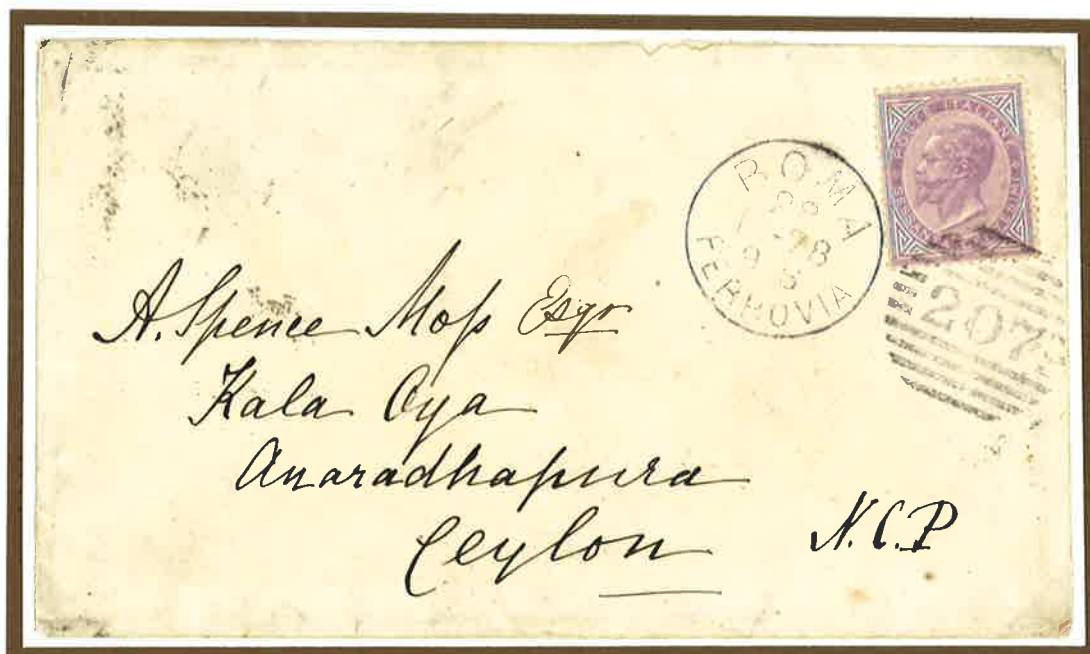 POSTE ITALIANE
ROMA
28
78
9 S
FERROVIA
2073
A. Spence Moſs Esqr
Kala Oya
Anaradhapura
Ceylon
N.C.P